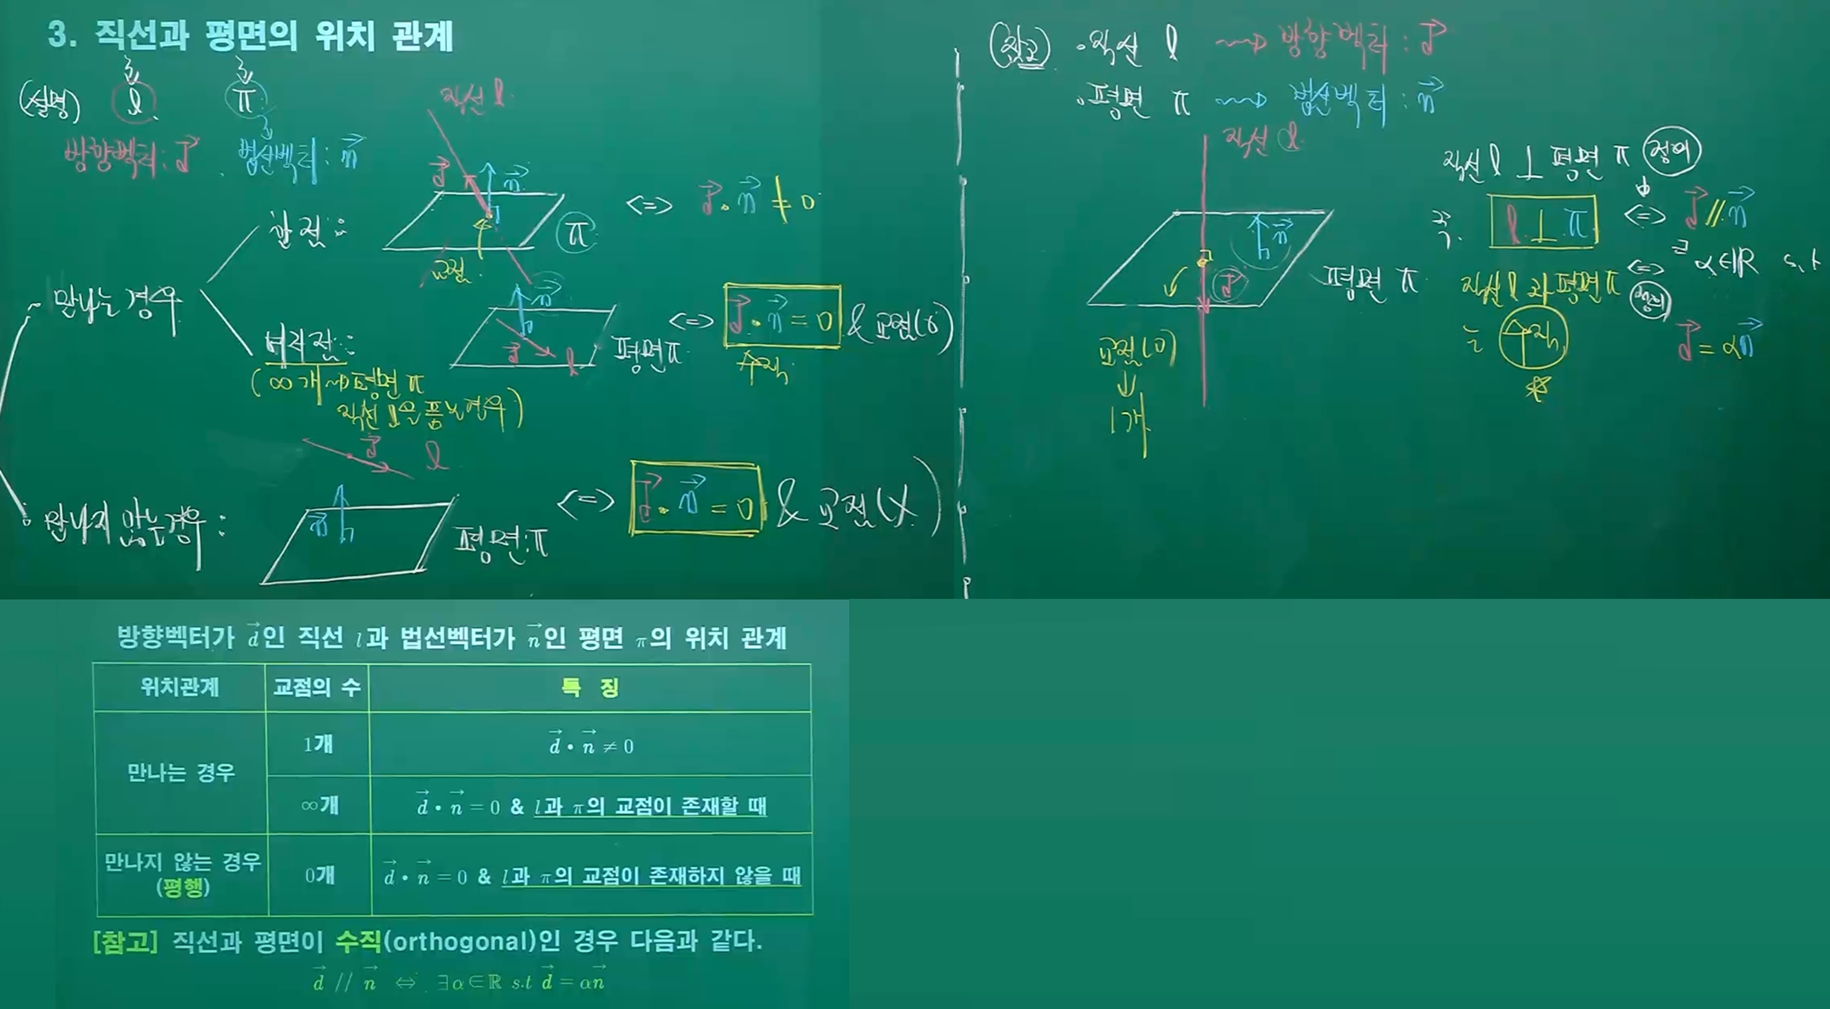 3. 직선과 평면의 위치 관계
(설명) l π
방향벡터: d⃗ , 법선벡터: n⃗
직선 l
d⃗ n⃗
π
한 점 : ⇔ d⃗ · n⃗ ≠ 0
교점
만나는 경우
n⃗
d⃗ l 평면 π
⇔ d⃗ · n⃗ = 0 & 교점(o)
수직
(∞개 ⇝ 평면 π
직선 l을 품는 경우)
d⃗ l
만나지 않는 경우 :
n⃗
평면 : π
⇔ d⃗ · n⃗ = 0 & 교점(X)
(참고) · 직선 l ⇝ 방향벡터 : d⃗
· 평면 π ⇝ 법선벡터 : n⃗
직선 l
n⃗
d⃗
평면 π
교점(o)
↓
1개
직선 l ⊥ 평면 π 정의
즉. l ⊥ π ⇔ d⃗ // n⃗
직선 l 과 평면 π ⇔ ∃α∈ℝ s.t
는 수직 정의 d⃗ = αn⃗
방향벡터가 d⃗인 직선 l과 법선벡터가 n⃗인 평면 π의 위치 관계
위치관계 교점의 수 특 징
만나는 경우 1개 d⃗ · n⃗ ≠ 0
∞개 d⃗ · n⃗ = 0 & l과 π의 교점이 존재할 때
만나지 않는 경우
(평행) 0개 d⃗ · n⃗ = 0 & l과 π의 교점이 존재하지 않을 때
[참고] 직선과 평면이 수직(orthogonal)인 경우 다음과 같다.
d⃗ // n⃗ ⇔ ∃α∈ℝ s.t d⃗ = αn⃗